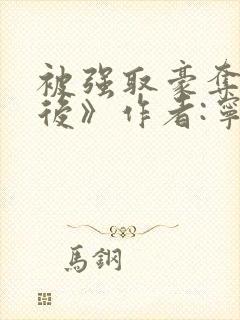 被强取豪夺
後》作者:寧
馬鋼